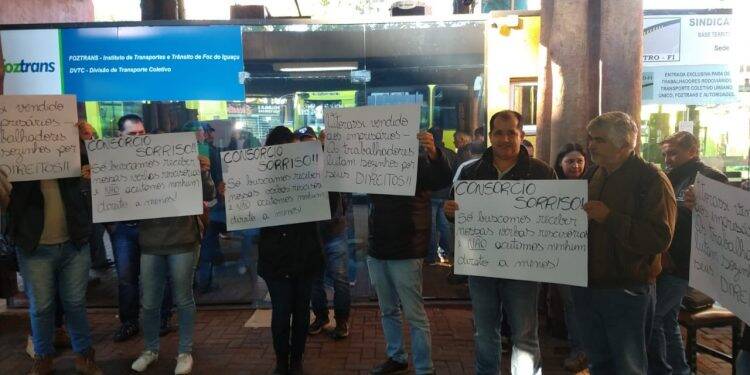 foztrans
FOZTRANS - Instituto de Transportes e Trânsito de Foz do Iguaçu
DVTC - Divisão de Transporte Coletivo
SINDICA
BASE TERRIT
Sede
TRO - FI
ENTRADA EXCLUSIVA PARA
TRABALHADORES RODOVIÁRIOS
TRANSPORTE COLETIVO URBANO
ÚNICO, FOZTRANS E AUTORIDADES
vendido
empresários
trabalhadores
sozinhos por
DIREITOS!
CONSÓRCIO SORRISO!!
Só buscamos receber
nossas verbas rescisórias
e NÃO aceitamos nenhum
direito a menos!
CONSÓRCIO SORRISO!!
Só buscamos receber
nossas verbas rescisórias
e NÃO aceitamos nenhum
direito a menos!
vendido
empresários -
trabalhadores
lutam sozinhos por
seus DIREITOS!
CONSÓRCIO SORRISO!!
Só buscamos receber
nossas verbas rescisórias
e NÃO aceitamos nenhum
direito a menos!
lutam
seus DI